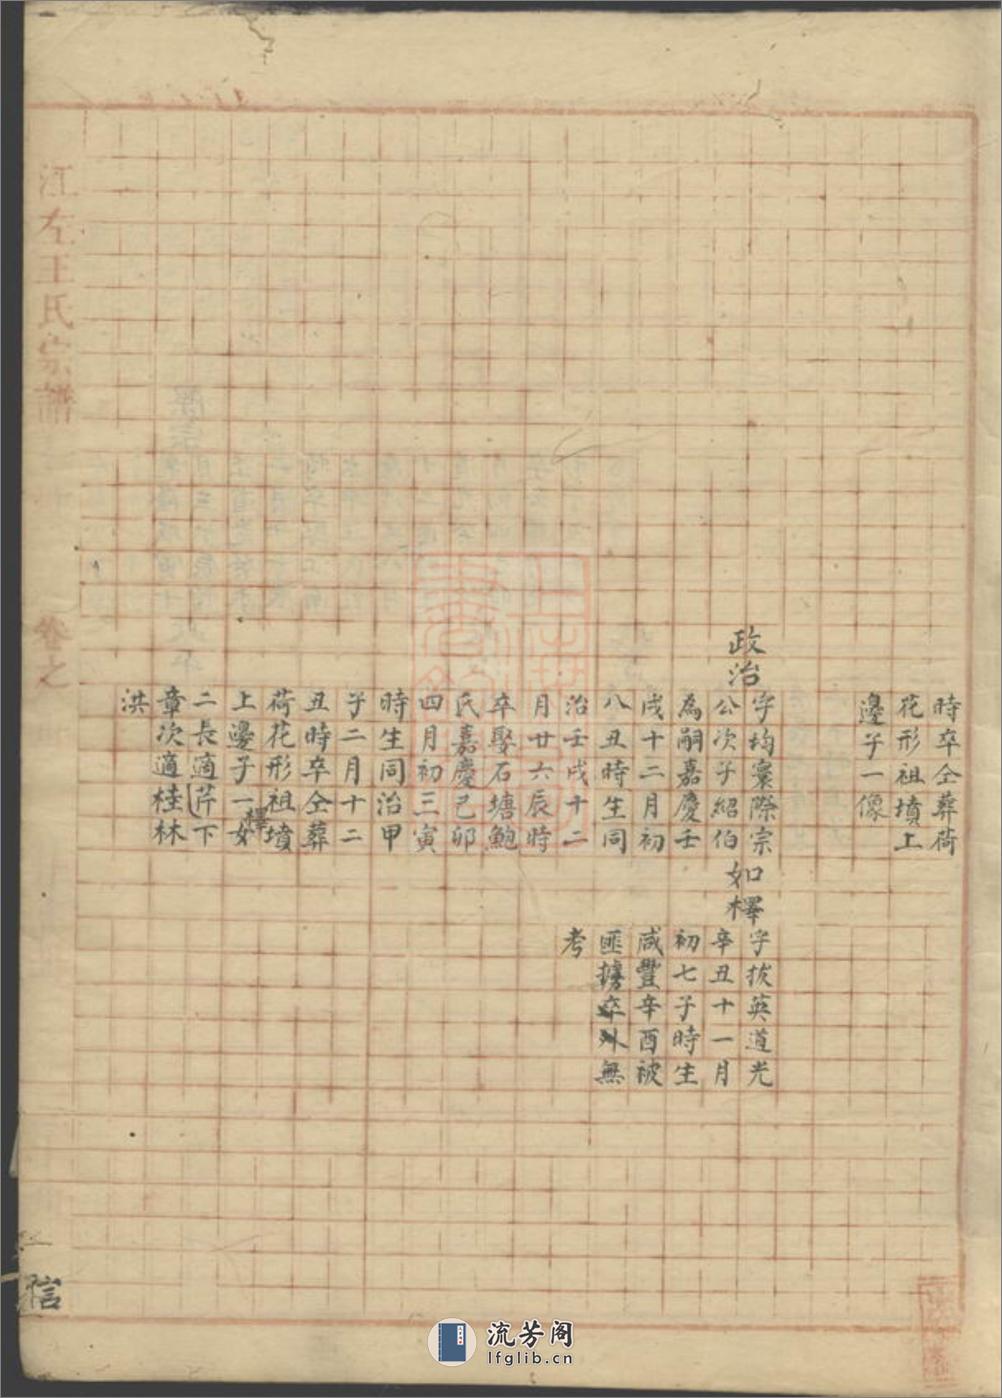 時卒仝葬荷
花形祖墳上
邊子一像
政治
字均寰際宗
公次子紹伯
為嗣嘉慶壬
戌十二月初
八丑時生同
治壬戌十二
月廿六辰時
卒娶石塘鮑
氏嘉慶己卯
四月初三寅
時生同治甲
子二月十二
丑時卒仝葬
荷花形祖墳
上邊子一檡女
二長適芹下
章次適桂林
洪
如檡
字拔英道光
辛丑十一月
初七子時生
咸豐辛酉被
匪擄卒外無
考
江左王氏宗譜
卷之
信
流芳阁
lfglib.cn